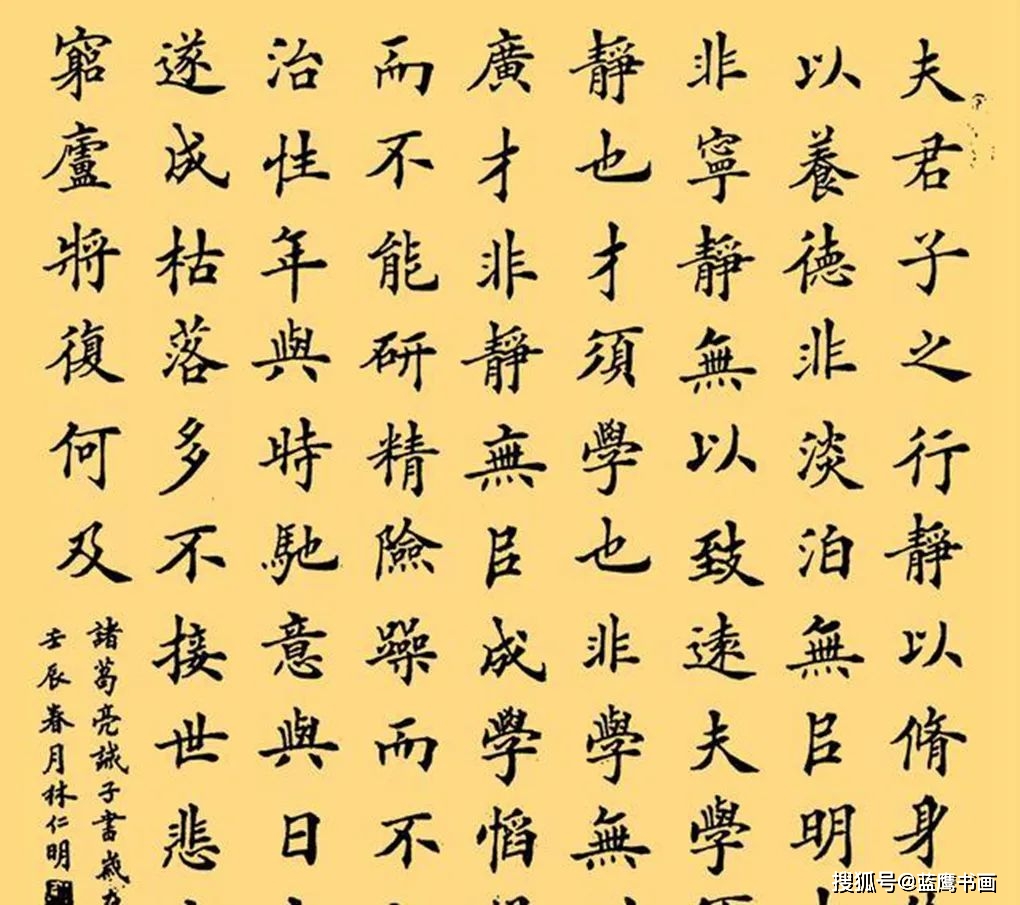 夫君子之行靜以脩身
以養德非淡泊無㠯明
非寧靜無以致遠夫學
靜也才須學也非學無
廣才非靜無㠯成學慆
而不能研精險躁而不
治性年與時馳意與日
遂成枯落多不接世悲
窮廬將復何及
諸葛亮誡子書歲
壬辰春月林仁明
搜狐号@蓝鹰书画